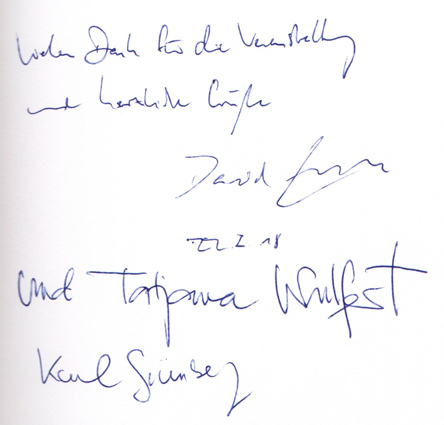 Vielen Dank für die Veranstaltung
und herzliche Grüße
David
22. I 18
und Tatjana Wulfert
Karl Grünberg